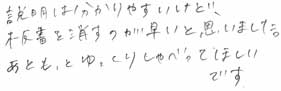 説明は分かりやすいけど、
板書を消すのが早いと思いました。
あともっとゆっくりしゃべってほしい
です